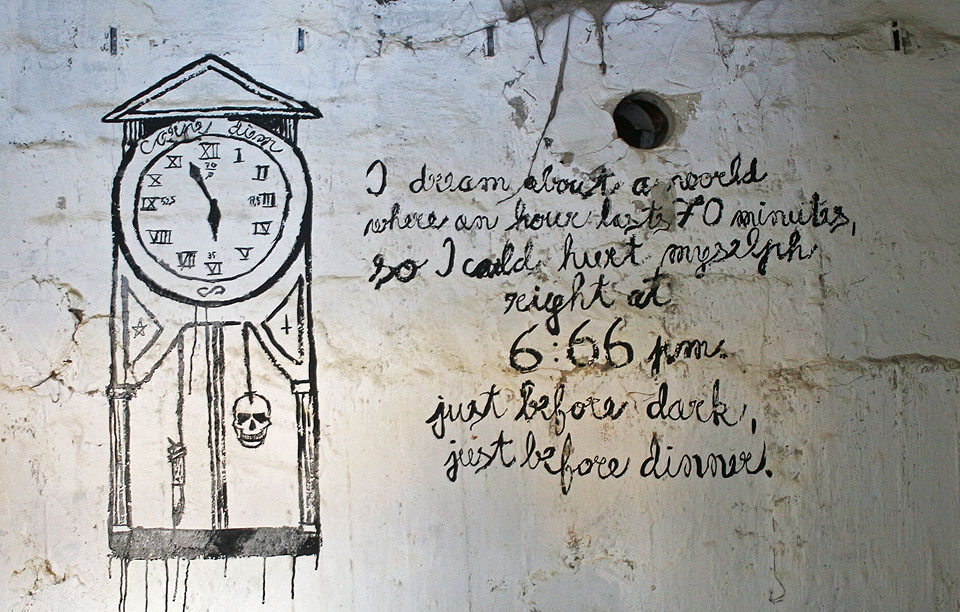 carpe diem
XII
I
II
III
IV
V
VI
VII
VIII
IX
X
XI
70
17,5
35
52,5
I dream about a world
where an hour lasts 70 minutes,
so I could hurt myselph
right at
6:66 pm.
just before dark,
just before dinner.